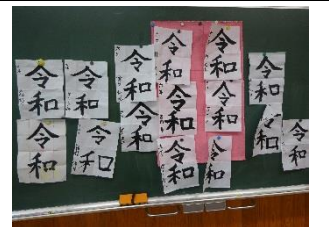 令和
令和
令和
令和
令和
令和
令和
令和
令和
令和
令和
令和
令和
令和